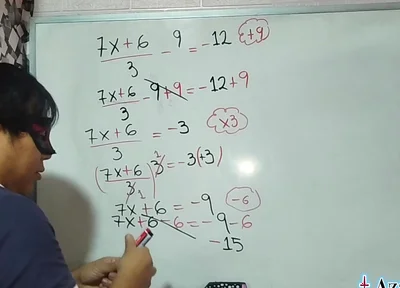 7x+6/3 - 9 = -12 +9
7x+6/3 - 9 + 9 = -12 + 9
7x+6/3 = -3 x3
(7x+6/3) 3 = -3(+3)
7x + 6 = -9 -6
7x + 6 - 6 = -9 - 6
-15